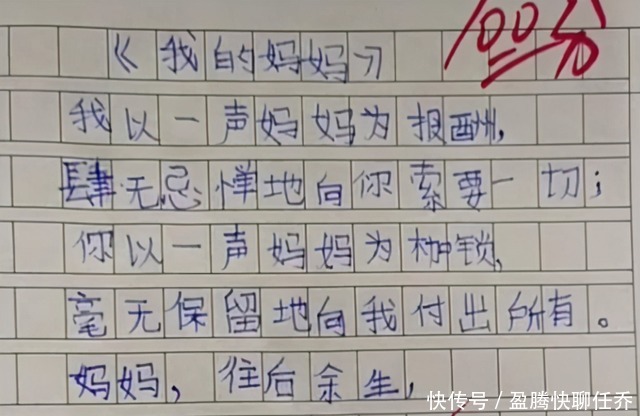 100分
《我的妈妈》
我以一声妈妈为报酬,
肆无忌惮地向你索要一切;
你以一声妈妈为枷锁,
毫无保留地向我付出所有。
妈妈,往后余生,
快传号/盈腾快聊任乔